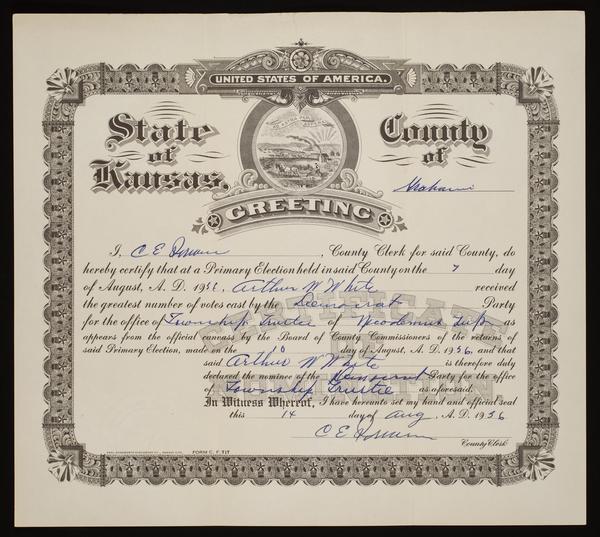 UNITED STATES OF AMERICA.
State of Kansas,
County of
Graham
GREETING
I, C E , County Clerk for said County, do
hereby certify that at a Primary Election held in said County on the 7 day
of August, A. D. 1956, Arthur W White received
the greatest number of votes cast by the Democrat Party
for the office of Township Trustee of Nicodemus Twp. as
appears from the official canvass by the Board of County Commissioners of the returns of
said Primary Election, made on the day of August, A. D. 1956, and that
said Arthur W White is therefore duly
declared the nominee of the Democrat Party for the office
of Township Trustee as aforesaid.
In Witness Whereof, I have hereunto set my hand and official seal
this 14 day of Aug, A. D. 1956
C E
County Clerk
CERTIFICATE
OF
NOMINATION
FORM C. F. 717